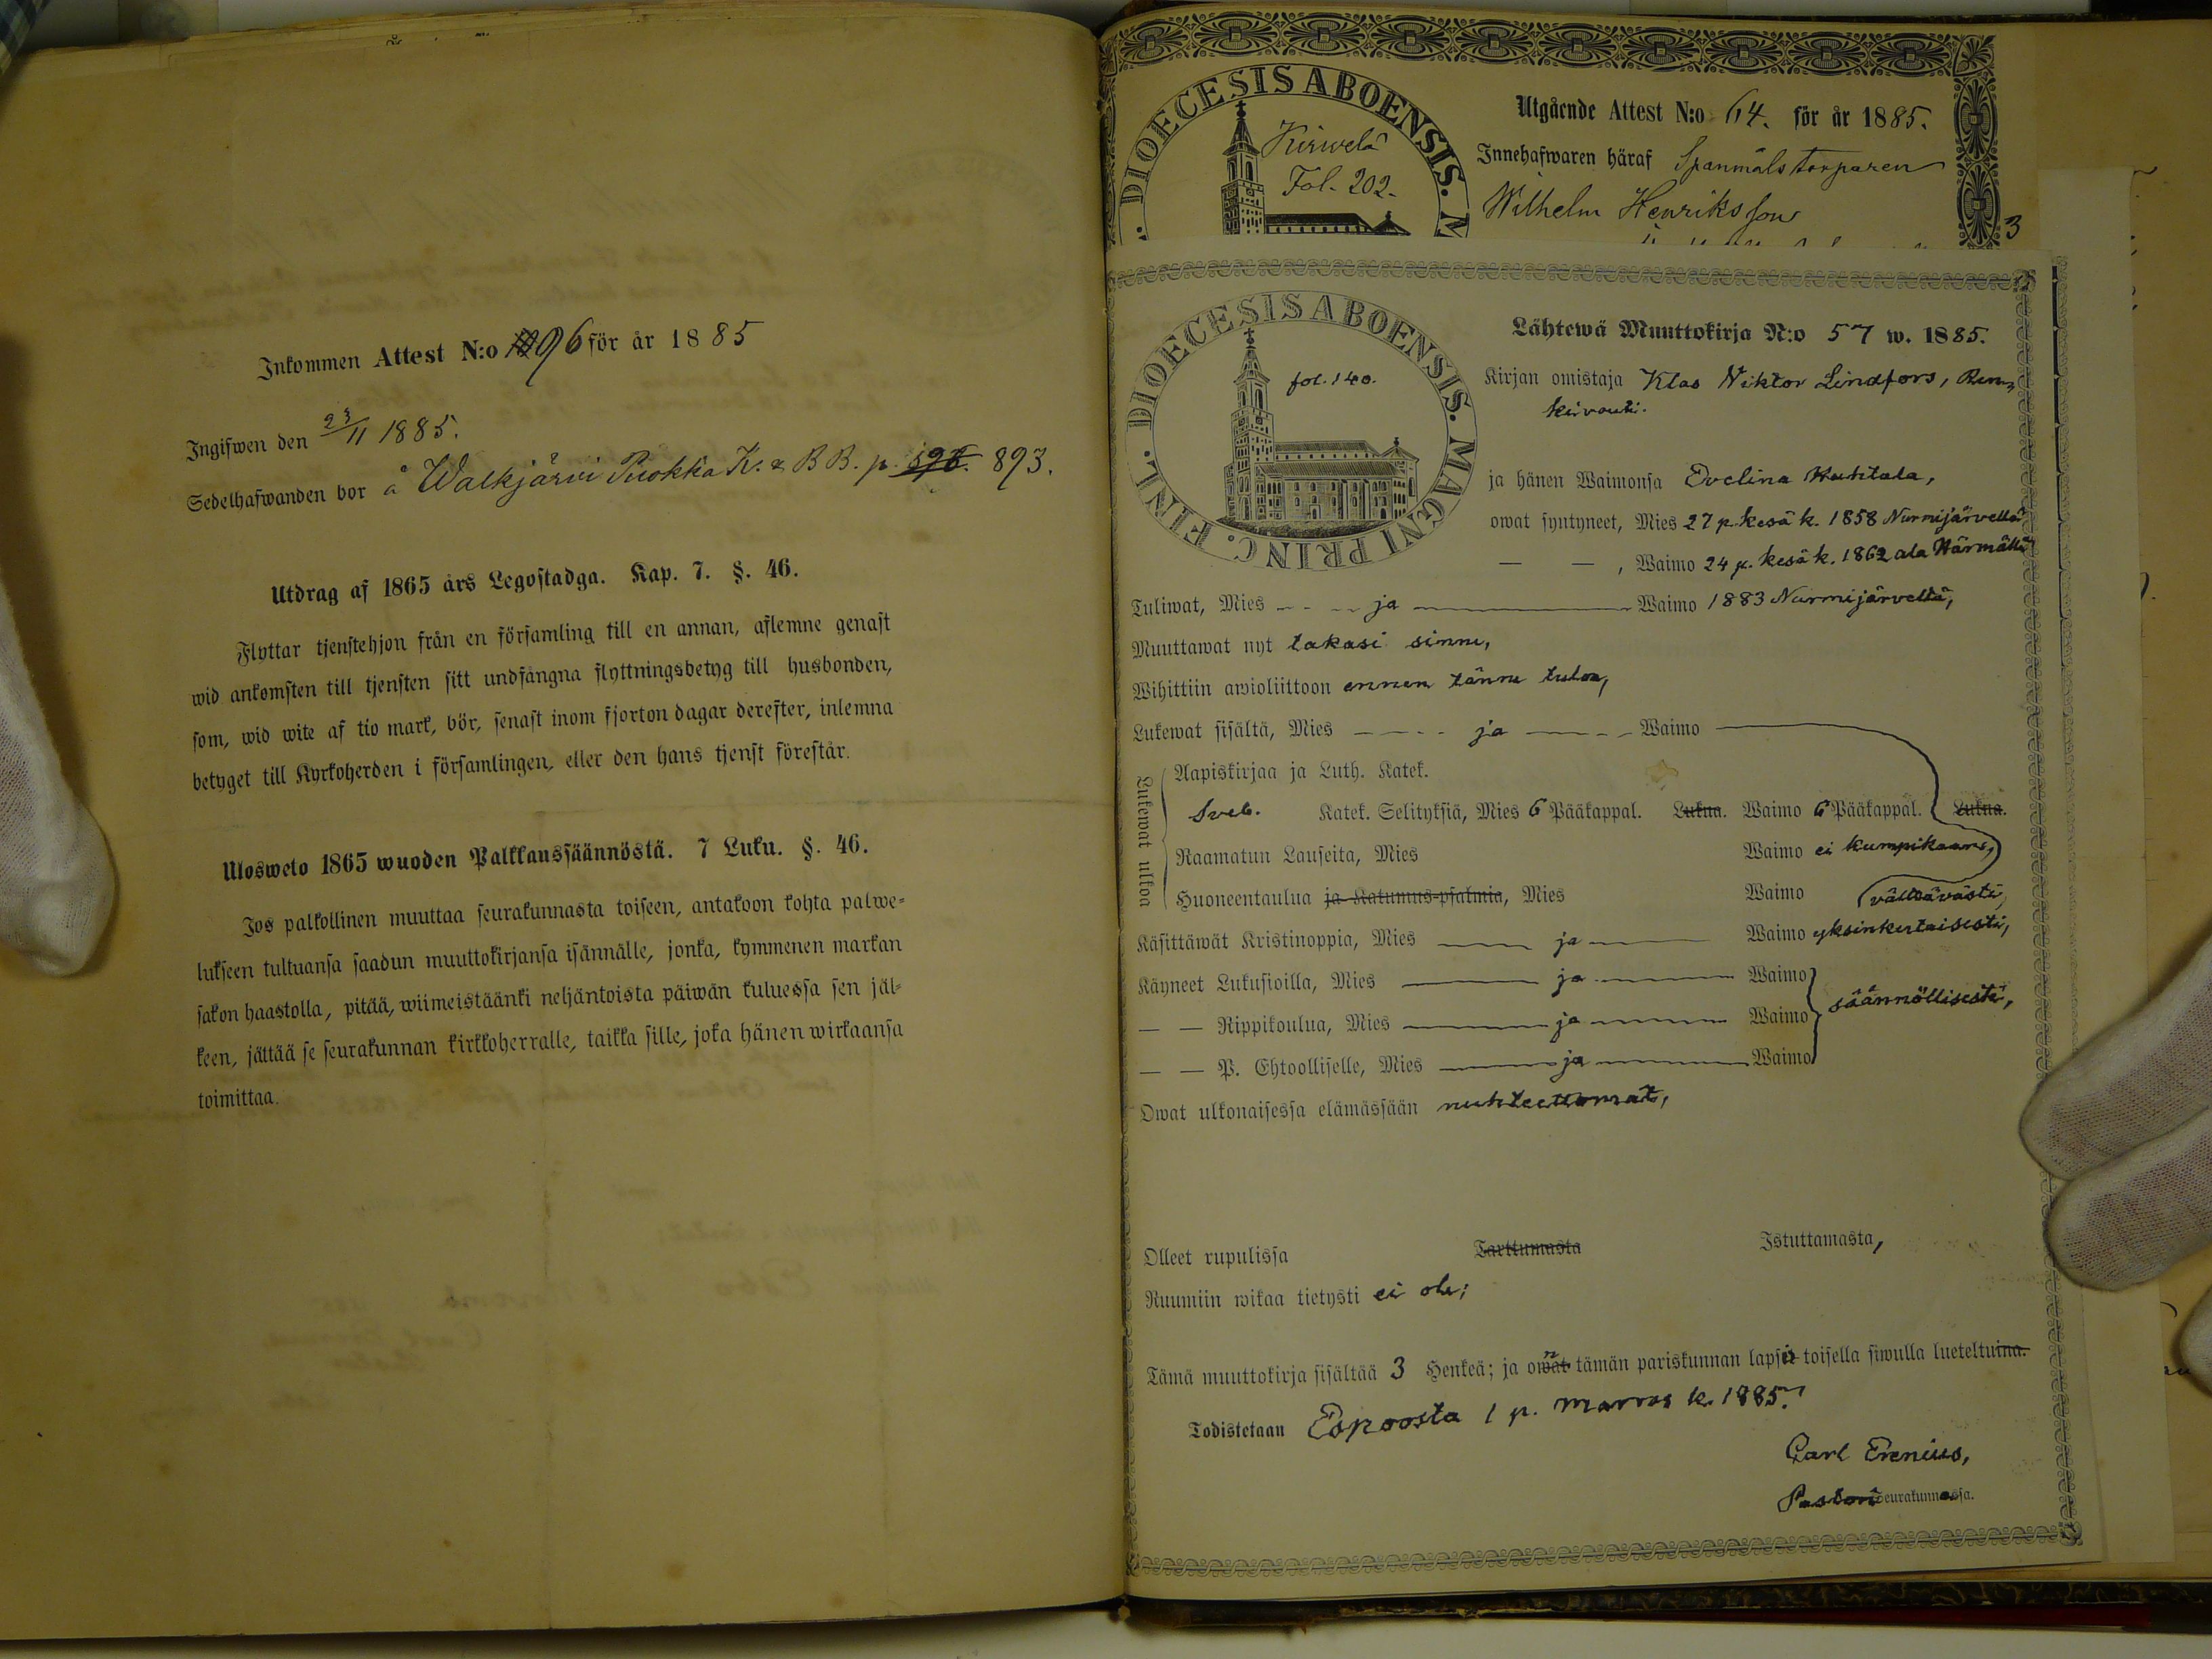 Inkommen Attest N:o 96 för år 1885
Ingifwen den 23/11 1885.
Sedelhafwanden bor å Walkjärwi Puokka K. & B B. p. 893.
Utdrag af 1865 års Legostadga. Kap. 7. §. 46.
Flyttar tjenstehjon från en församling till en annan, aflemne genast
wid ankomsten till tjensten sitt undfångna flyttningsbetyg till husbonden,
som, wid wite af tio mark, bör, senast inom fjorton dagar derefter, inlemna
betyget till Kyrkoherden i församlingen, eller den hans tjenst förestår.
Ulosweto 1865 wuoden Palkkaussäännöstä. 7 Luku. §. 46.
Jos palkollinen muuttaa seurakunnasta toiseen, antakoon kohta palwe-
lukseen tultuansa saadun muuttokirjansa isännälle, jonka, kymmenen markan
sakon haastolla, pitää, wiimeistäänki neljäntoista päiwän kuluessa sen jäl-
keen, jättää se seurakunnan kirkkoherralle, taikka sille, joka hänen wirkaansa
toimittaa.
DIOECESIS ABOENSIS. M
Kirwelä
Fol. 202.
Utgående Attest N:o 64. för år 1885.
Innehafwaren häraf Spanmålstorparen
Wilhelm Henriksson
3
DIOECESIS ABOENSIS. MAGNI PRINC. FINL.
fol. 140.
Lähtewä Muuttokirja N:o 57 w. 1885.
Kirjan omistaja Klas Viktor Lindfors, Ren-
kivouti.
ja hänen Waimonsa Evelina Huhtala,
owat syntyneet, Mies 27 p. kesä k. 1858 Nurmijärvellä
— — , Waimo 24 p. kesä k. 1862 ala Härmällä
Tuliwat, Mies - - - ja — Waimo 1883 Nurmijärveltä,
Muuttawat nyt takasi sinne,
Wihittiin awioliittoon ennen tänne tuloa,
Lukewat sisältä, Mies - - - - ja - - - Waimo
Lukewat ulkoa
Aapiskirjaa ja Luth. Katek.
Sveb. Katek. Selityksiä, Mies 6 Pääkappal. Lukua. Waimo 6 Pääkappal. Lukua.
Raamatun Lauseita, Mies Waimo ei kumpikaan,
Huoneentaulua ja Katumus-psalmia, Mies Waimo välttävästi,
Käsittäwät Kristinoppia, Mies — ja — Waimo yksinkertaisesti,
Käyneet Lukusioilla, Mies — ja — Waimo
— — Rippikoulua, Mies — ja — Waimo säännöllisesti,
— — P. Ehtoolliselle, Mies — ja — Waimo
Owat ulkonaisessa elämässään nuhteettomat,
Olleet rupulissa Tarttumasta Istuttamasta,
Ruumiin wikaa tietysti ei ole;
Tämä muuttokirja sisältää 3 Henkeä; ja on tämän pariskunnan lapsi toisella siwulla lueteltu
Todistetaan Espoosta 1 p. marras k. 1885.
Carl Erenius,
Pastori seurakunnassa.